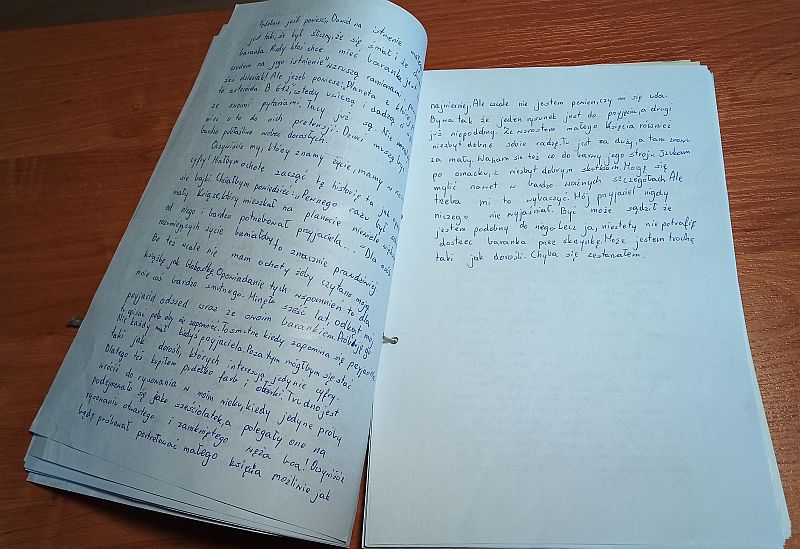 Podobnie jeśli powiesz: „Dowód na istnienie małego
jest taki, że był śliczny, że się śmiał i że
baranka. Kiedy ktoś chce mieć baranka, jest
dowodem na jego istnienie" wzruszą ramionami,
Ale jeżeli powiesz: „Planeta z której
to asteroida B 612, wtedy uwierzą i dadzą ci
ze swoimi pytaniami. Tacy już są. Nie
mieć o to do nich pretensji. Dzieci muszą być
bardzo pobłażliwe wobec dorosłych.
Oczywiście my, którzy znamy życie, mamy w
cyfry! Miałbym ochotę zacząć tę historię tak jak
się bajki. Chciałbym powiedzieć: „Pewnego razu był
mały książę, który mieszkał na planecie niewiele
od niego i bardzo potrzebował przyjaciela..." Dla
rozumiejących życie brzmiałoby to znacznie prawdziwiej.
Bo też wcale nie mam ochoty żeby czytano moją
książkę jak błahostkę. Opowiadanie tych wspomnień to dla
mnie coś bardzo smutnego. Minęło sześć lat, odkąd mój
przyjaciel odszedł wraz ze swoim barankiem. Próbuję go
tu opisać żeby o nim nie zapomnieć. To smutne kiedy zapomina się przyjaciela
Nie każdy miał kiedyś przyjaciela. Poza tym mógłbym się stać
taki jak dorośli, których interesują jedynie cyfry.
Dlatego też kupiłem pudełko farb i ołówki. Trudno jest
wrócić do rysowania w moim wieku, kiedy jedyne próby
podejmowało się jako sześciolatek, a polegały one na
rysowaniu otwartego i zamkniętego węża boa! Oczywiście
będę próbował portretować małego księcia możliwie jak
najwierniej. Ale wcale nie jestem pewien, czy mi się uda.
Bywa tak że jeden rysunek jest do przyjęcia, a drugi
już niepodobny. Ze wzrostem małego księcia również
niezbyt dobrze sobie radzę. Tu jest za duży, a tam znowu
za mały. Waham się też co do barwy jego stroju. Szukam
po omacku, z niezbyt dobrym skutkiem. Mogę się
mylić nawet w bardzo ważnych szczegółach. Ale
trzeba mi to wybaczyć. Mój przyjaciel nigdy
niczego nie wyjaśniał. Być może sądził że
jestem podobny do niego. Lecz ja, niestety nie potrafię
dostrzec baranka przez skrzynkę. Może jestem trochę
taki jak dorośli. Chyba się zestarzałem.